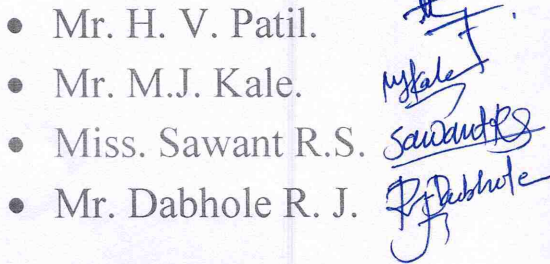 • Mr. H. V. Patil.
• Mr. M.J. Kale. MJKale
• Miss. Sawant R.S. SawantRS
• Mr. Dabhole R. J. RJDabhole